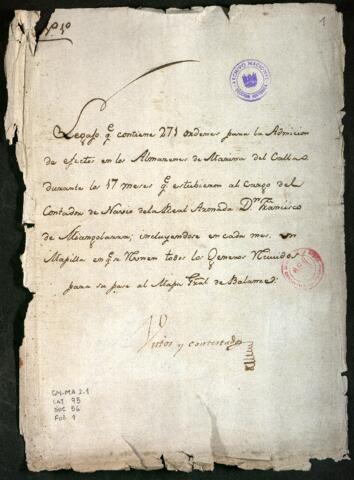 1
Legajo q.e contiene 271 ordenes para la Admicion
de efectos en los Almazenes de Marina del Callao
durante los 17 meses q.e estubieron al cargo del
Contador de Navio de la Real Armada D.n Francisco
de incluyendose en cada mes, un
Mapilla en q.e se todos los Generos
para su pase al Mapa Gral de Balance.
Vistos y contestados
ARCHIVO NACIONAL
GM-MA 2.1
CAJ 95
DOC 56
Fol 1